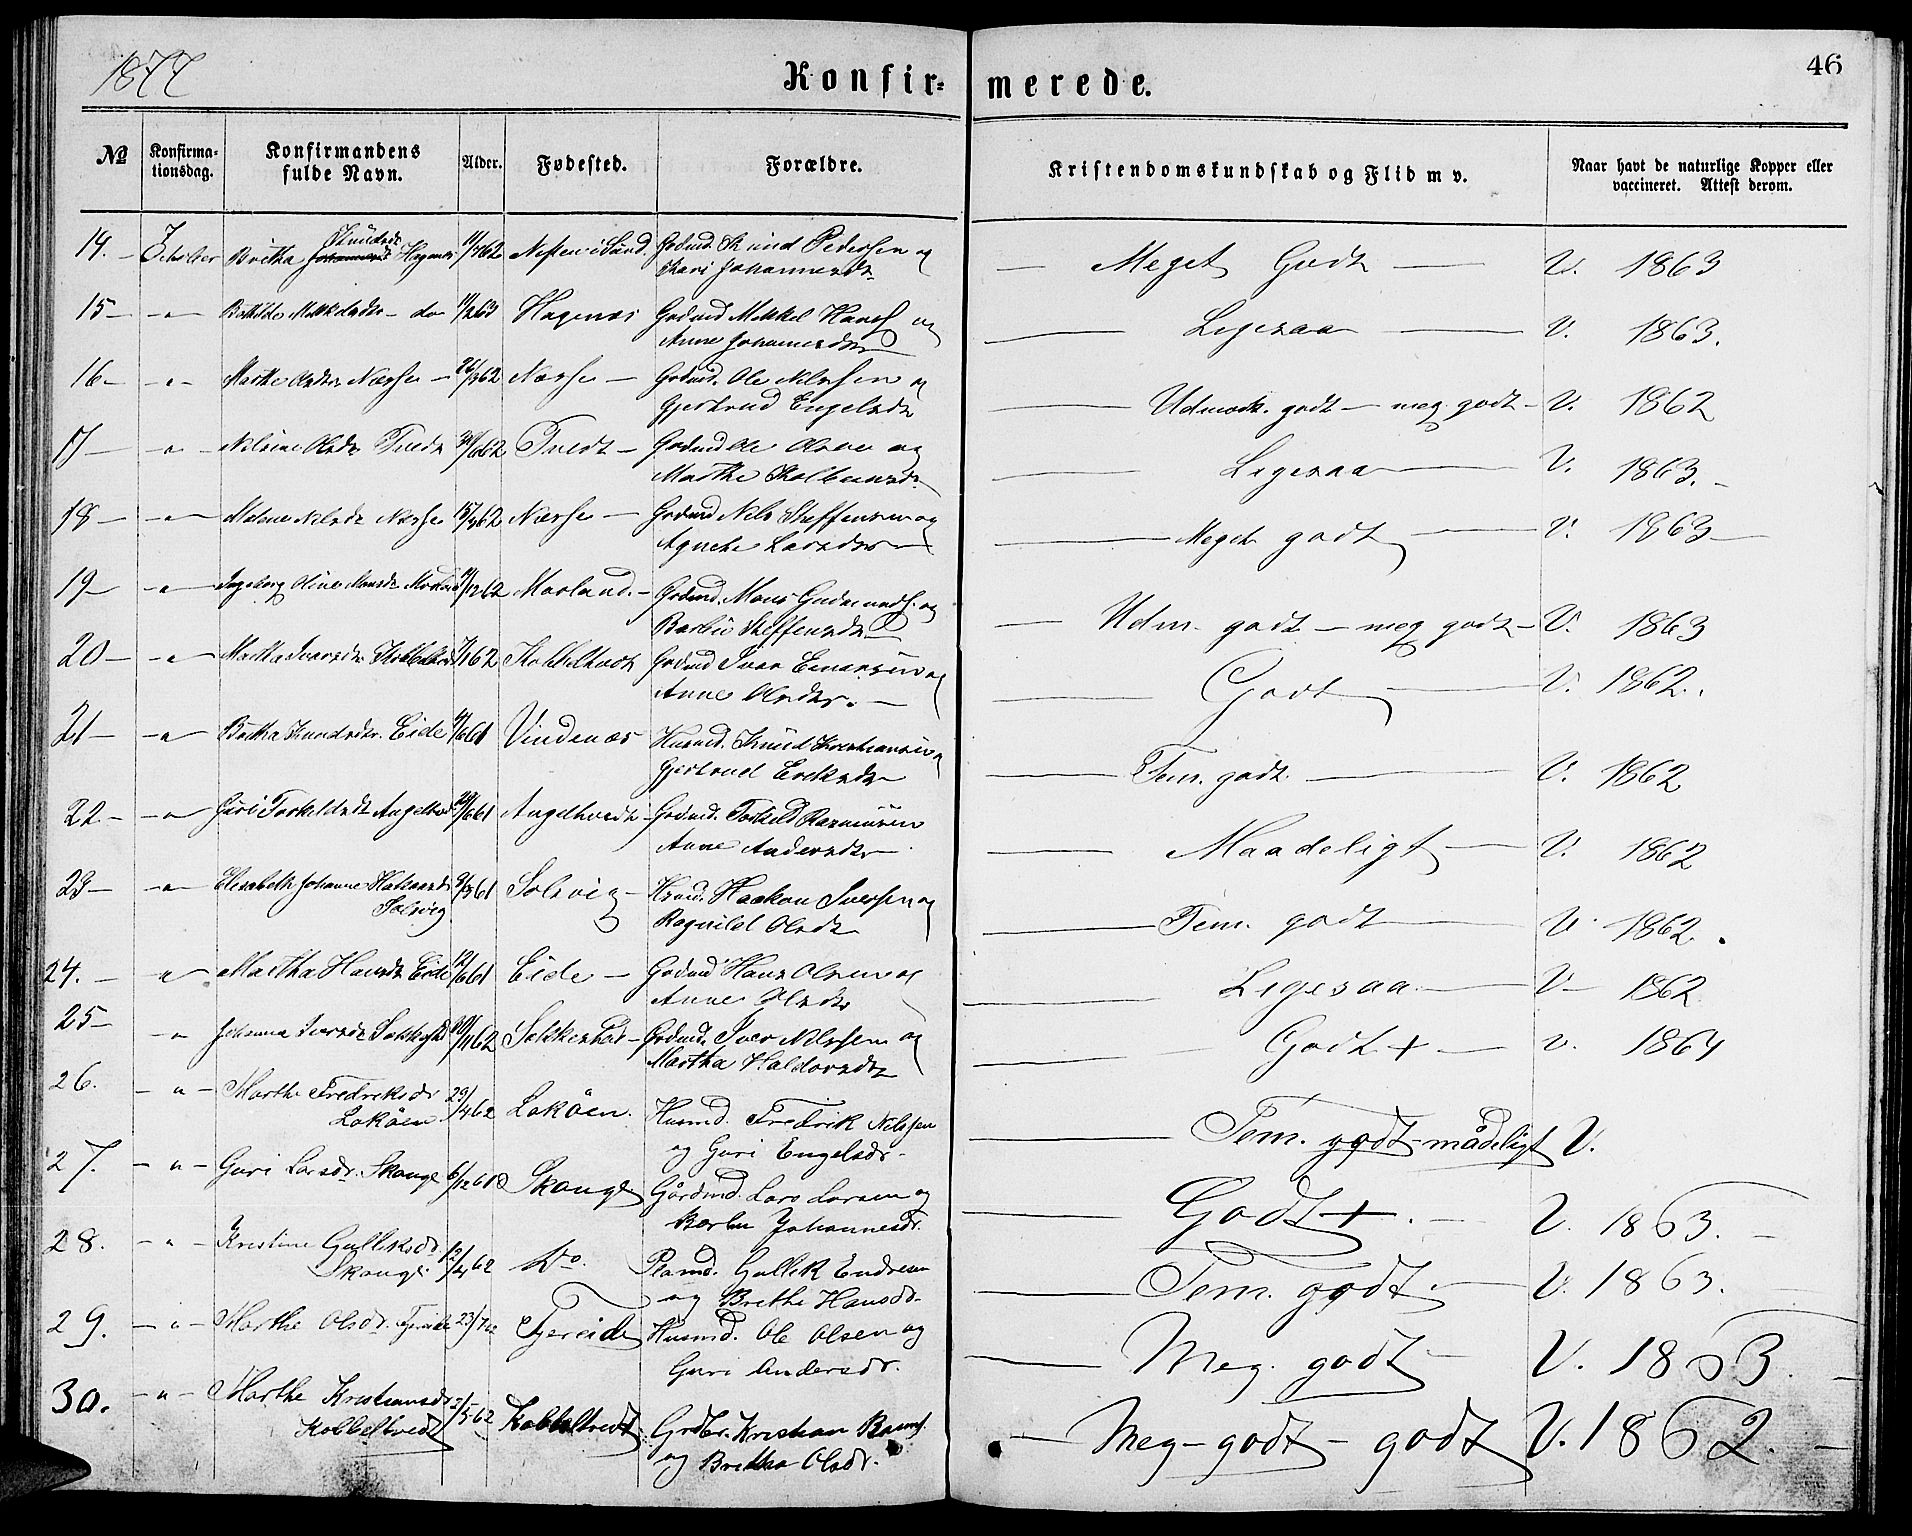 1877
Konfirmerede.
46
№
Konfirma-
tionsdag.
Konfirmandens
fulde Navn.
Alder.
Fødested.
Forældre.
Kristendomskundskab og Flid m v.
Naar havt de naturlige Kopper eller
vaccineret. Attest derom.
14. Britha Knudsdr Grdmd. Knud Pedersen og
Kari Johannesdr
Meget Godt V. 1863
15 – " – do 63 Hagenæs Grdmd Mikkel Hansf og
Anne Johannesdr
Ligesaa V. 1863.
16 – " – Marthe Olsdr Næsse 26/3 62 Næsse Grdmd. Ole Nilssen og
Gjertrud Engelsdr
Udmærk. godt – meg. godt – V. 1862
17 – " – Olsdr Tvedt 62 Tvedt – Grdmd Ole Olsen og
Marthe Kolbensdr
Ligesaa V. 1863. –
18 – " – Malene Nilsdr Næsse 62 Næsse – Grdmd Nils Steffensen og
Agnethe Larsdr
Meget godt V. 1863 –
19 – " – Ingeborg Oline Monsdr Morland 62 Morland. – Grdmd. Mons Gudmunds. og
Barbro Steffensdr
Udm. godt – meg godt – V. 1863
20 – " – Martha Iversdr Kobbeltvedt 62 Kobbeltvedt Grdmd Iver Einarsen og
Anne Olsdr. –
Godt V. 1862.
21 – " – Britha Knudsdr. Eide 61 Vindenæs Husmd. Knud Kristiansen og
Gjertrud Eriksdr
Tem. godt. V. 1862
22. – " – Guri Torkildsdr Angeltvedt 61 Angeltvedt Grdmd. Torkild Rasmussen
Anne Andersdr
Maadeligt V. 1862
23 – " – Elisabeth Johanne Haakonsdr
Solsvig 61 Solsvig – Haakon Iversen og
Ragnild Olsdr
Tem. godt V. 1862.
24. – " – Martha Hansdr Eide 12/6 61 Eide – Grdmd Hans Olsen og
Anne Olsdr
Ligesaa. V – 1862.
25 – " – Johanna Iversdr Sekkestad 62 Sekkestad – Grdmd. Iver Nilssen og
Martha Haldorsdr
Godt + V. 1864
26. – " – Marthe Fredriksdr
Lokøen 29/4 62 Lokøen. Husmd. Fredrik Nilssen
og Guri Engelsdr.
Tem. godt – mådeligt V.
27. – " – Guri Larsdr. Skauge 6/12 61 Skauge Gårdmd. Lars Larsen og
Karlen Johannesdr.
Godt + . – V. 1863. –
28. – " – Kristine Gulliksdr
Skauge 12/4 62 Do. Plamd. Gullik Endresen
og Brethe Hansdr.
Tem. godt. V. 1863.
29. – " – Marthe Olsdr. Tjereide 23/7 62 Tjereide Husmd. Ole Olsen og
Guri Andersdr.
Meg. godt – V. 1863.
30. – " – Marthe Kristiansdr
Kobbeltvedt 2/5 62 Kobbeltvedt Grdbr. Kristian Rasmf.
og Brethe Olsdr.
Meg – godt – godt V. 1862. –